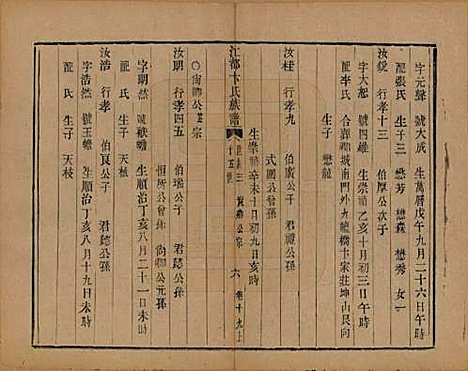 字元聲 號大成 生萬曆戊午九月二十六日午時
配張氏 生子三 懋芳 懋森 懋秀 女一
汝鋐 行孝十三 伯厚公次子
字大恕 號四維 生崇禎乙亥十月初三日午時
配岑氏 合葬城南門外九龍橋卞家莊坤山艮向
生子一 懋龍
汝桂 行孝九 伯 公子 君禮公孫
式圖公曾孫
生崇禎辛未十月初九日亥時
江都卞氏族譜
十五世
六
卷十九上
〇尙卿公宗
汝明 行孝四五 伯瑤公子 君懿公孫
恒所公曾孫 尙卿公元孫
字期然 號猷蟾 生順治丁亥八月二十一日未時
配 氏 生子 天枝
汝浩 行孝 伯良公子 君懿公孫
字浩然 號玉蟾 生順治丁亥八月十九日未時
配 氏 生子 天枝